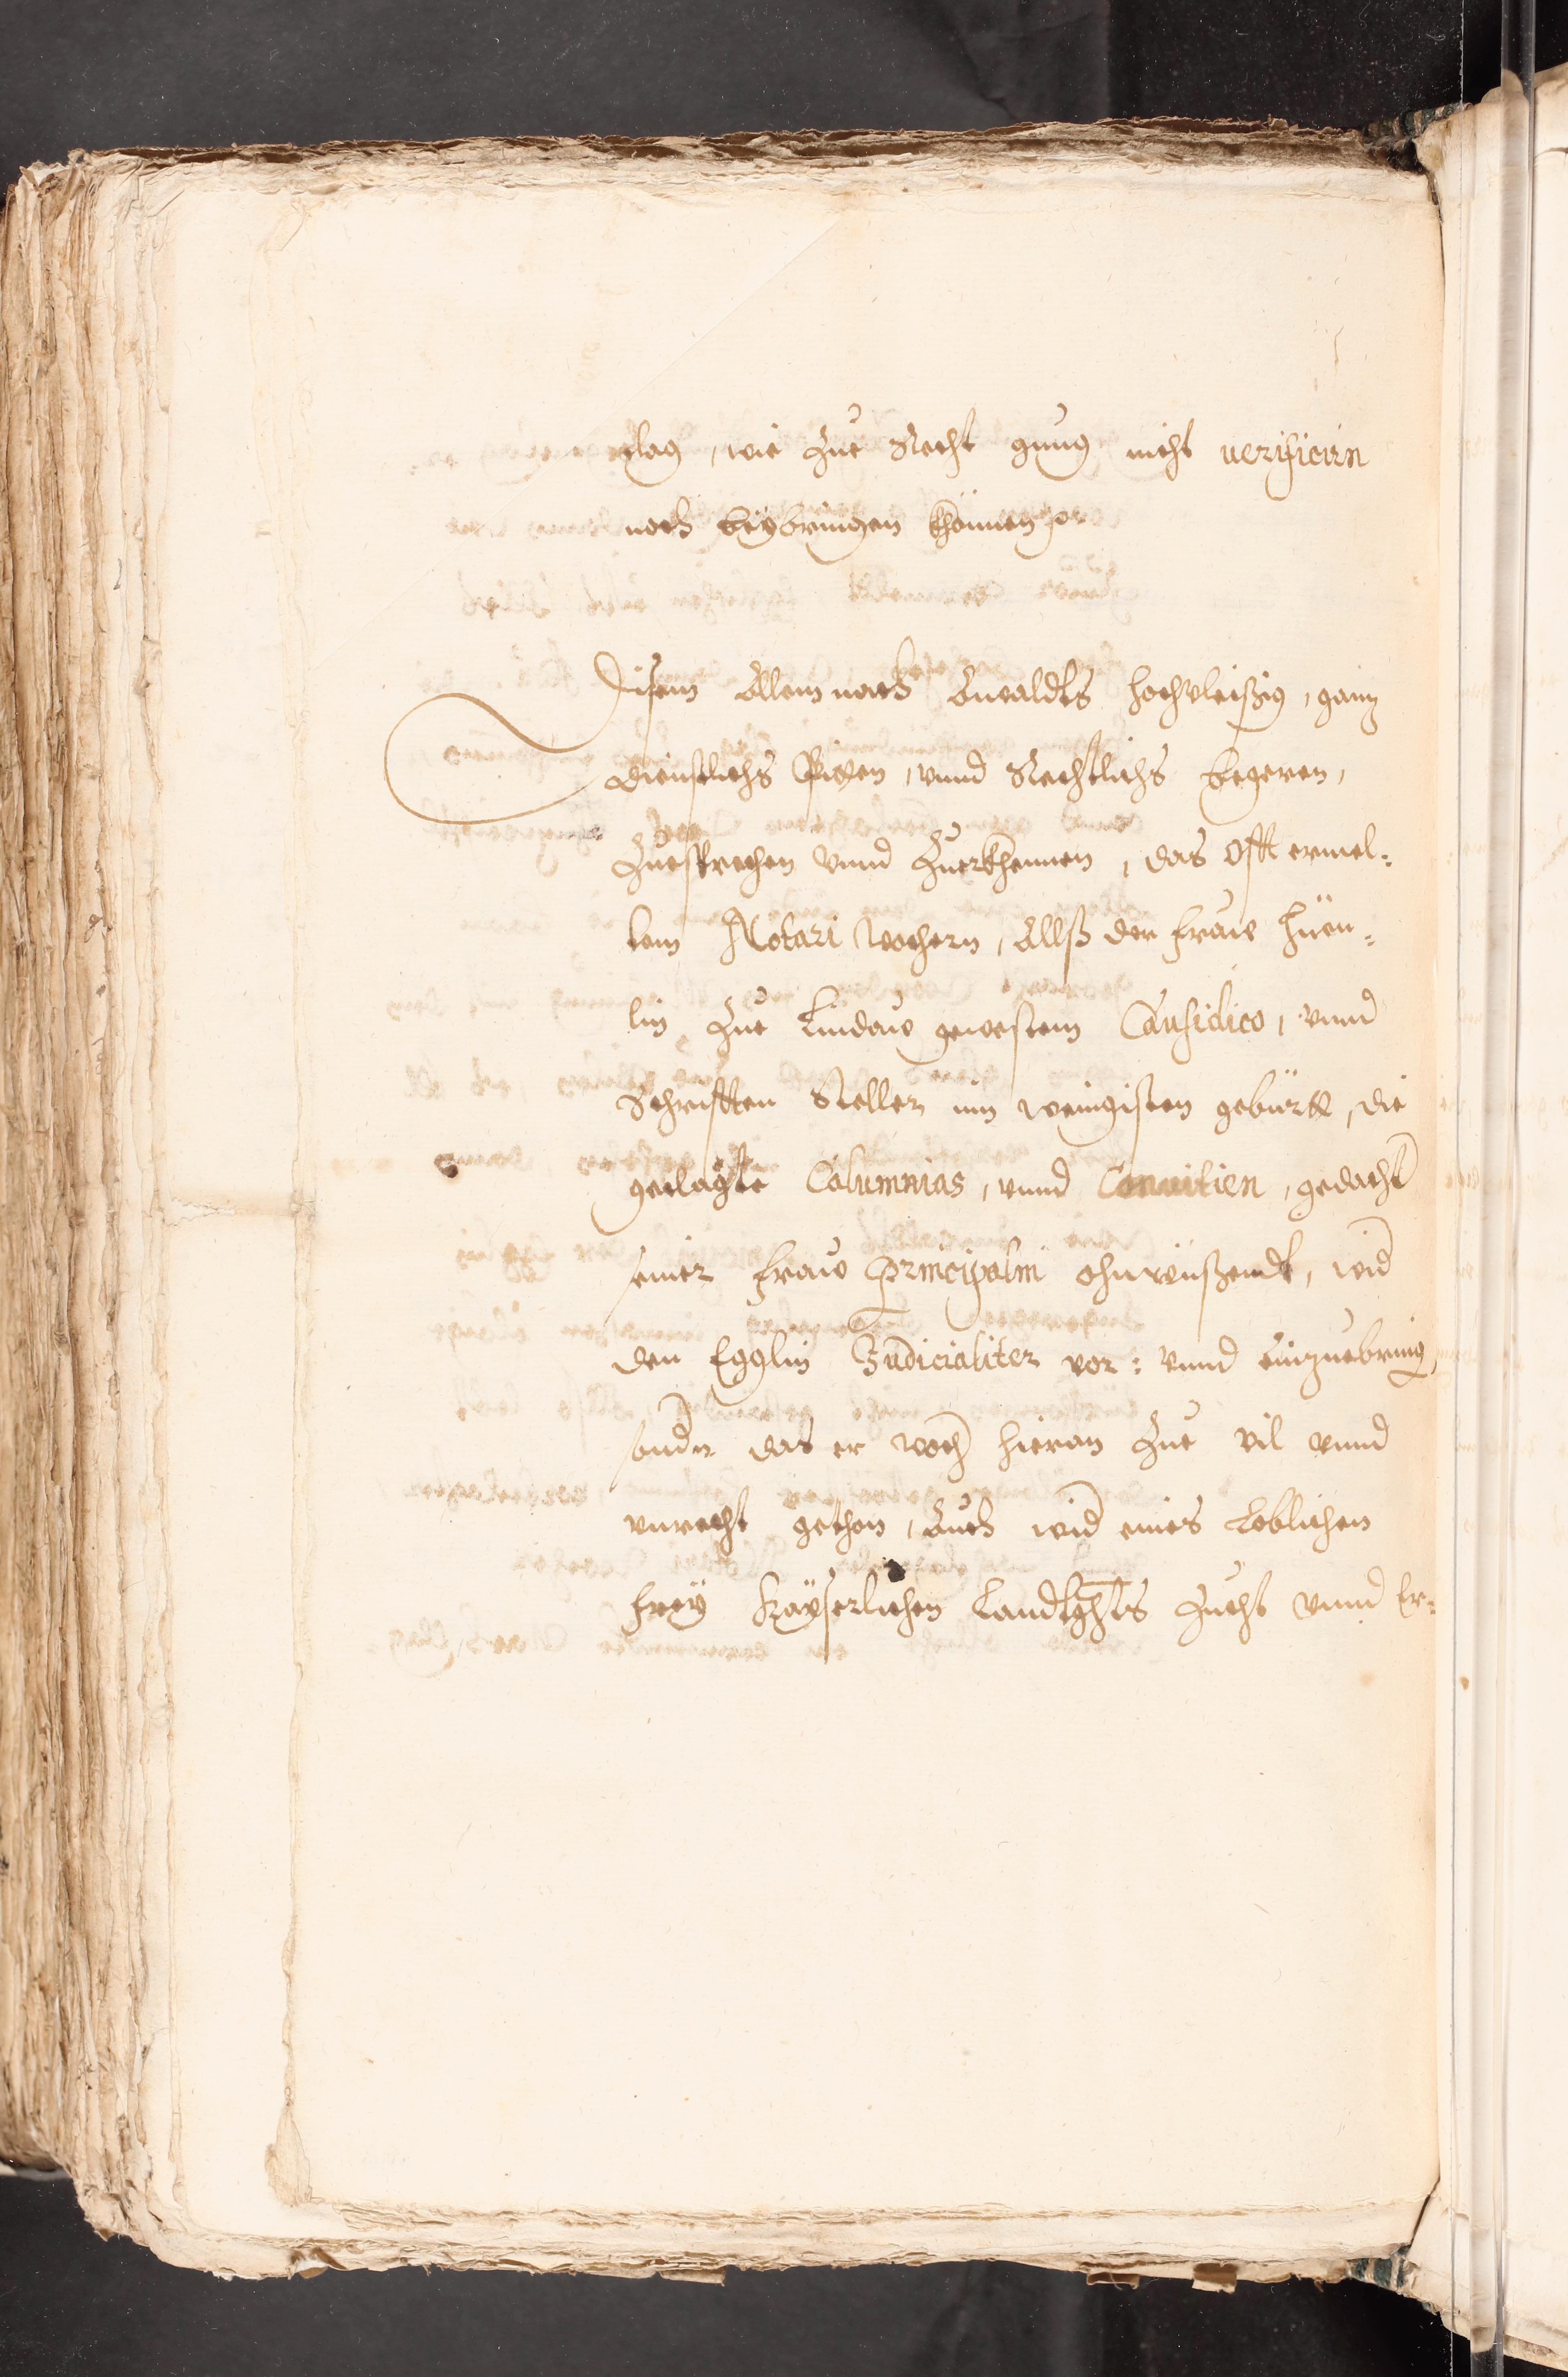 clag, wie Zue Recht gnuog nicht uerificirn
noch beybringen khönnen
Disem Allem nach Anwaldts hochvleißig, ganz
dienstlichs Pitten, vnnd Rechtlichs begeren,
Zuesprechen vnnd Zuerkhennen, das offt ermel-
tem Notari Wochern, Allß der Fraw Hüen-
lin Zue Lindaw gewestem Causidico, vnnd
Schrifften Steller im wenigisten gebürtt, die
geclagte Calumnias, vnnd Conuitien, gedacht
seiner Fraw Principalin ohnwüssendt, wid
den Egglin Judicialiter vor: vnnd einzuebring,
sondn das er Woch hieran Zue vil vnnd
vnrecht gethon, Auch wid eines Loblichen
Frey Kayserlichen Landtghts Zucht vnnd Er-